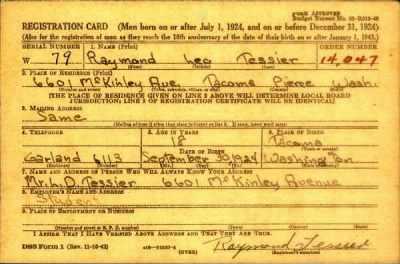 FORM APPROVED
REGISTRATION CARD (Men born on or after July 1, 1924, and on or before December 31, 1924)
(Also for the registration of men as they reach the 18th anniversary of the date of their birth on or after January 1, 1943.)
SERIAL NUMBER 1. NAME (Print) ORDER NUMBER
W 79 Raymond Leo Tessier 14,047
(First) (Middle) (Last)
2. PLACE OF RESIDENCE (Print)
6601 McKinley Ave. Tacoma Pierce Wash.
(Number and street) (Town) (County) (State)
[THE PLACE OF RESIDENCE GIVEN ON LINE 2 ABOVE WILL DETERMINE LOCAL BOARD
JURISDICTION; LINE 2 OF REGISTRATION CERTIFICATE WILL BE IDENTICAL]
3. MAILING ADDRESS
Same
[Mailing address if other than place indicated on line 2. If same, insert word same]
4. TELEPHONE 5. AGE IN YEARS 6. PLACE OF BIRTH
18 Tacoma
Garland 6113 September 30, 1924 Washington
7. NAME AND ADDRESS OF PERSON WHO WILL ALWAYS KNOW YOUR ADDRESS
Mr. L. D. Tessier 6601 McKinley Avenue
8. EMPLOYER'S NAME AND ADDRESS
Student
9. PLACE OF EMPLOYMENT OR BUSINESS
(Number and street or R. F. D. number) (Town) (County) (State)
I AFFIRM THAT I HAVE VERIFIED ABOVE ANSWERS AND THAT THEY ARE TRUE.
DSS Form 1 (Rev. 11-16-42) (OVER) Raymond Tessier
(Registrant's signature)